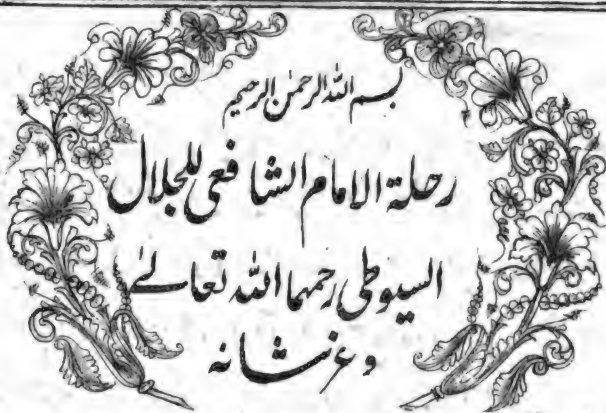 بسم الله الرحمن الرحيم
رحلة الامام الشافعی للجلال
السیوطی رحمهما الله تعالیٰ
وعزشانه